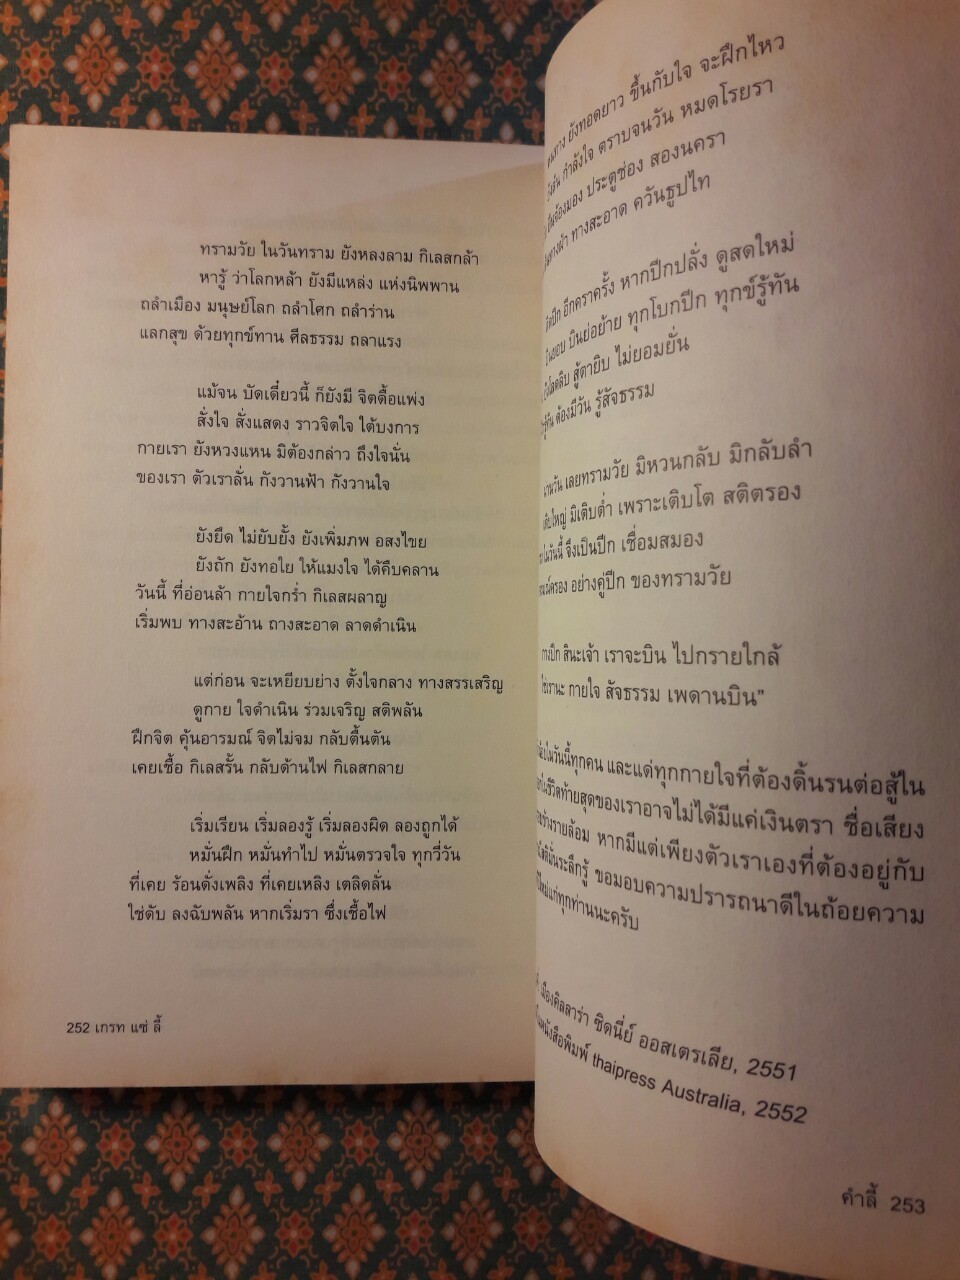 ทรามวัย ในวันทราม ยังหลงลาม กิเลสกล้า
หารู้ ว่าโลกหล้า ยังมีแหล่ง แห่งนิพพาน
ถลำเมือง มนุษย์โลก ถลำโศก ถลำร่าน
แลกสุข ด้วยทุกข์ทาน ศีลธรรม ถลาแรง
แม้จน บัดเดี๋ยวนี้ ก็ยังมี จิตดื้อแพ่ง
สั่งใจ สั่งแสดง ราวจิตใจ ใต้บงการ
กายเรา ยังหวงแหน มิต้องกล่าว ถึงใจนั่น
ของเรา ตัวเราลั่น กังวานฟ้า กังวานใจ
ยังยึด ไม่ยับยั้ง ยังเพิ่มภพ อสงไขย
ยังถัก ยังทอใย ให้แมงใจ ได้คืบคลาน
วันนี้ ที่อ่อนล้า กายใจกร่ำ กิเลสผลาญ
เริ่มพบ ทางสะอ้าน ถางสะอาด ลาดดำเนิน
แต่ก่อน จะเหยียบย่าง ตั้งใจกลาง ทางสรรเสริญ
ดูกาย ใจดำเนิน ร่วมเจริญ สติพลัน
ฝึกจิต คุ้นอารมณ์ จิตไม่จม กลับตื้นตัน
เคยเชื้อ กิเลสรั้น กลับด้านไฟ กิเลสกลาย
เริ่มเรียน เริ่มลองรู้ เริ่มลองผิด ลองถูกได้
หมั่นฝึก หมั่นทำไป หมั่นตรวจใจ ทุกวี่วัน
ที่เคย ร้อนดั่งเพลิง ที่เคยเหลิง เตลิดลั่น
ใช่ดับ ลงฉับพลัน หากเริ่มรา ซึ่งเชื้อไฟ
252 เกรท แซ่ ลี้
ยังทอดยาว ขึ้นกับใจ จะฝึกไหว
กำลังใจ ตราบจนวัน หมดโรยรา
ประตูช่อง สองนครา
ทางสะอาด ควันธูปไท
อีกคราครั้ง หากปีกปลั่ง ดูสดใหม่
บินย่อย้าย ทุกโบกปีก ทุกข์รู้ทัน
สู้ตายิบ ไม่ยอมยั่น
ต้องมีวัน รู้สัจธรรม
เลยทรามวัย มิหวนกลับ มิกลับลำ
มิเติบต่ำ เพราะเติบโต สติตรอง
จึงเป็นปีก เชื่อมสมอง
อย่างคู่ปีก ของทรามวัย
สินะเจ้า เราจะบิน ไปกรายใกล้
กายใจ สัจธรรม เพดานบิน"
ในวันนี้ทุกคน และแด่ทุกกายใจที่ต้องดิ้นรนต่อสู้ใน
ชีวิตท้ายสุดของเราอาจไม่ได้มีแค่เงินตรา ชื่อเสียง
รายล้อม หากมีแต่เพียงตัวเราเองที่ต้องอยู่กับ
ระลึกรู้ ขอมอบความปรารถนาดีในถ้อยความ
แก่ทุกท่านนะครับ
เมืองคิลลาร่า ซิดนี่ย์ ออสเตรเลีย, 2551
หนังสือพิมพ์ thaipress Australia, 2552
คำลี้ 253